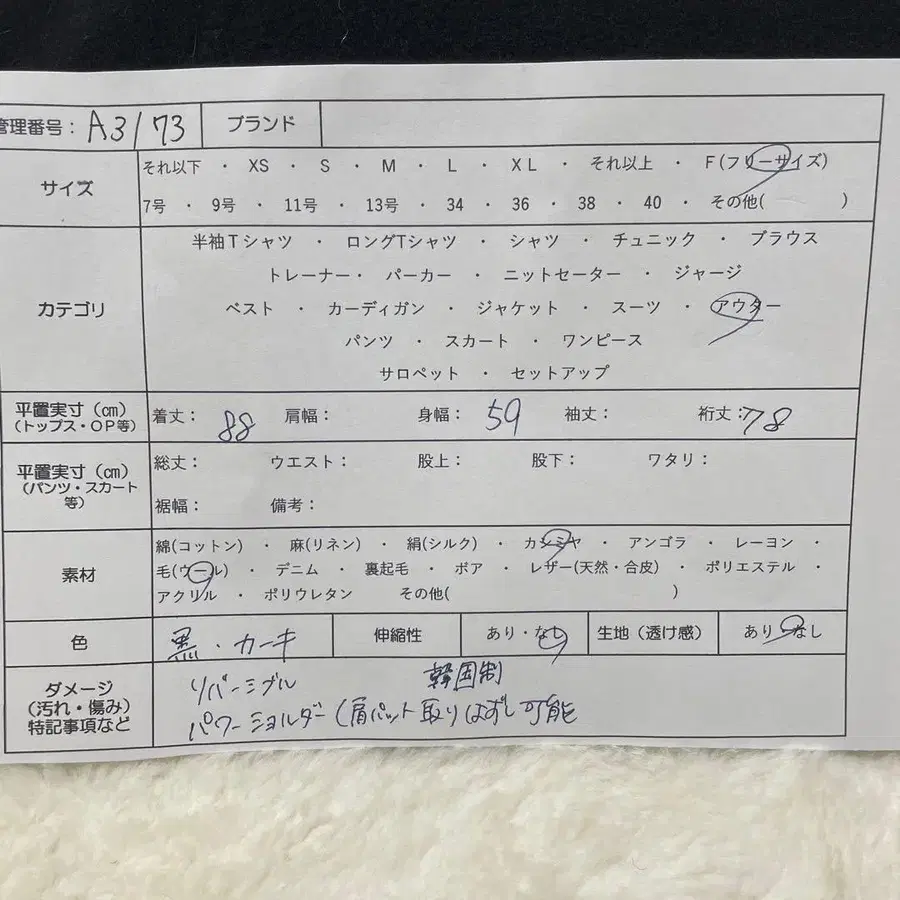 管理番号: A3173 ブランド
サイズ それ以下 ・ XS ・ S ・ M ・ L ・ XL ・ それ以上 ・ F(フリーサイズ)
7号 ・ 9号 ・ 11号 ・ 13号 ・ 34 ・ 36 ・ 38 ・ 40 ・ その他( )
カテゴリ
半袖Tシャツ ・ ロングTシャツ ・ シャツ ・ チュニック ・ ブラウス
トレーナー・ パーカー ・ ニットセーター ・ ジャージ
ベスト ・ カーディガン ・ ジャケット ・ スーツ ・ アウター
パンツ ・ スカート ・ ワンピース
サロペット ・ セットアップ
平置実寸(㎝)
(トップス・OP等)
着丈: 88 肩幅: 身幅: 59 袖丈: 裄丈: 78
平置実寸(㎝)
(パンツ・スカート
等)
総丈: ウエスト: 股上: 股下: ワタリ:
裾幅: 備考:
素材
綿(コットン) ・ 麻(リネン) ・ 絹(シルク) ・ カシミヤ ・ アンゴラ ・ レーヨン ・
毛(ウール) ・ デニム ・ 裏起毛 ・ ボア ・ レザー(天然・合皮) ・ ポリエステル ・
アクリル ・ ポリウレタン その他( )
色 黒・カーキ 伸縮性 あり・なし 生地(透け感) あり・なし
ダメージ
(汚れ・傷み)
特記事項など
リバーシブル 韓国制
パワーショルダー(肩パット取りはずし可能